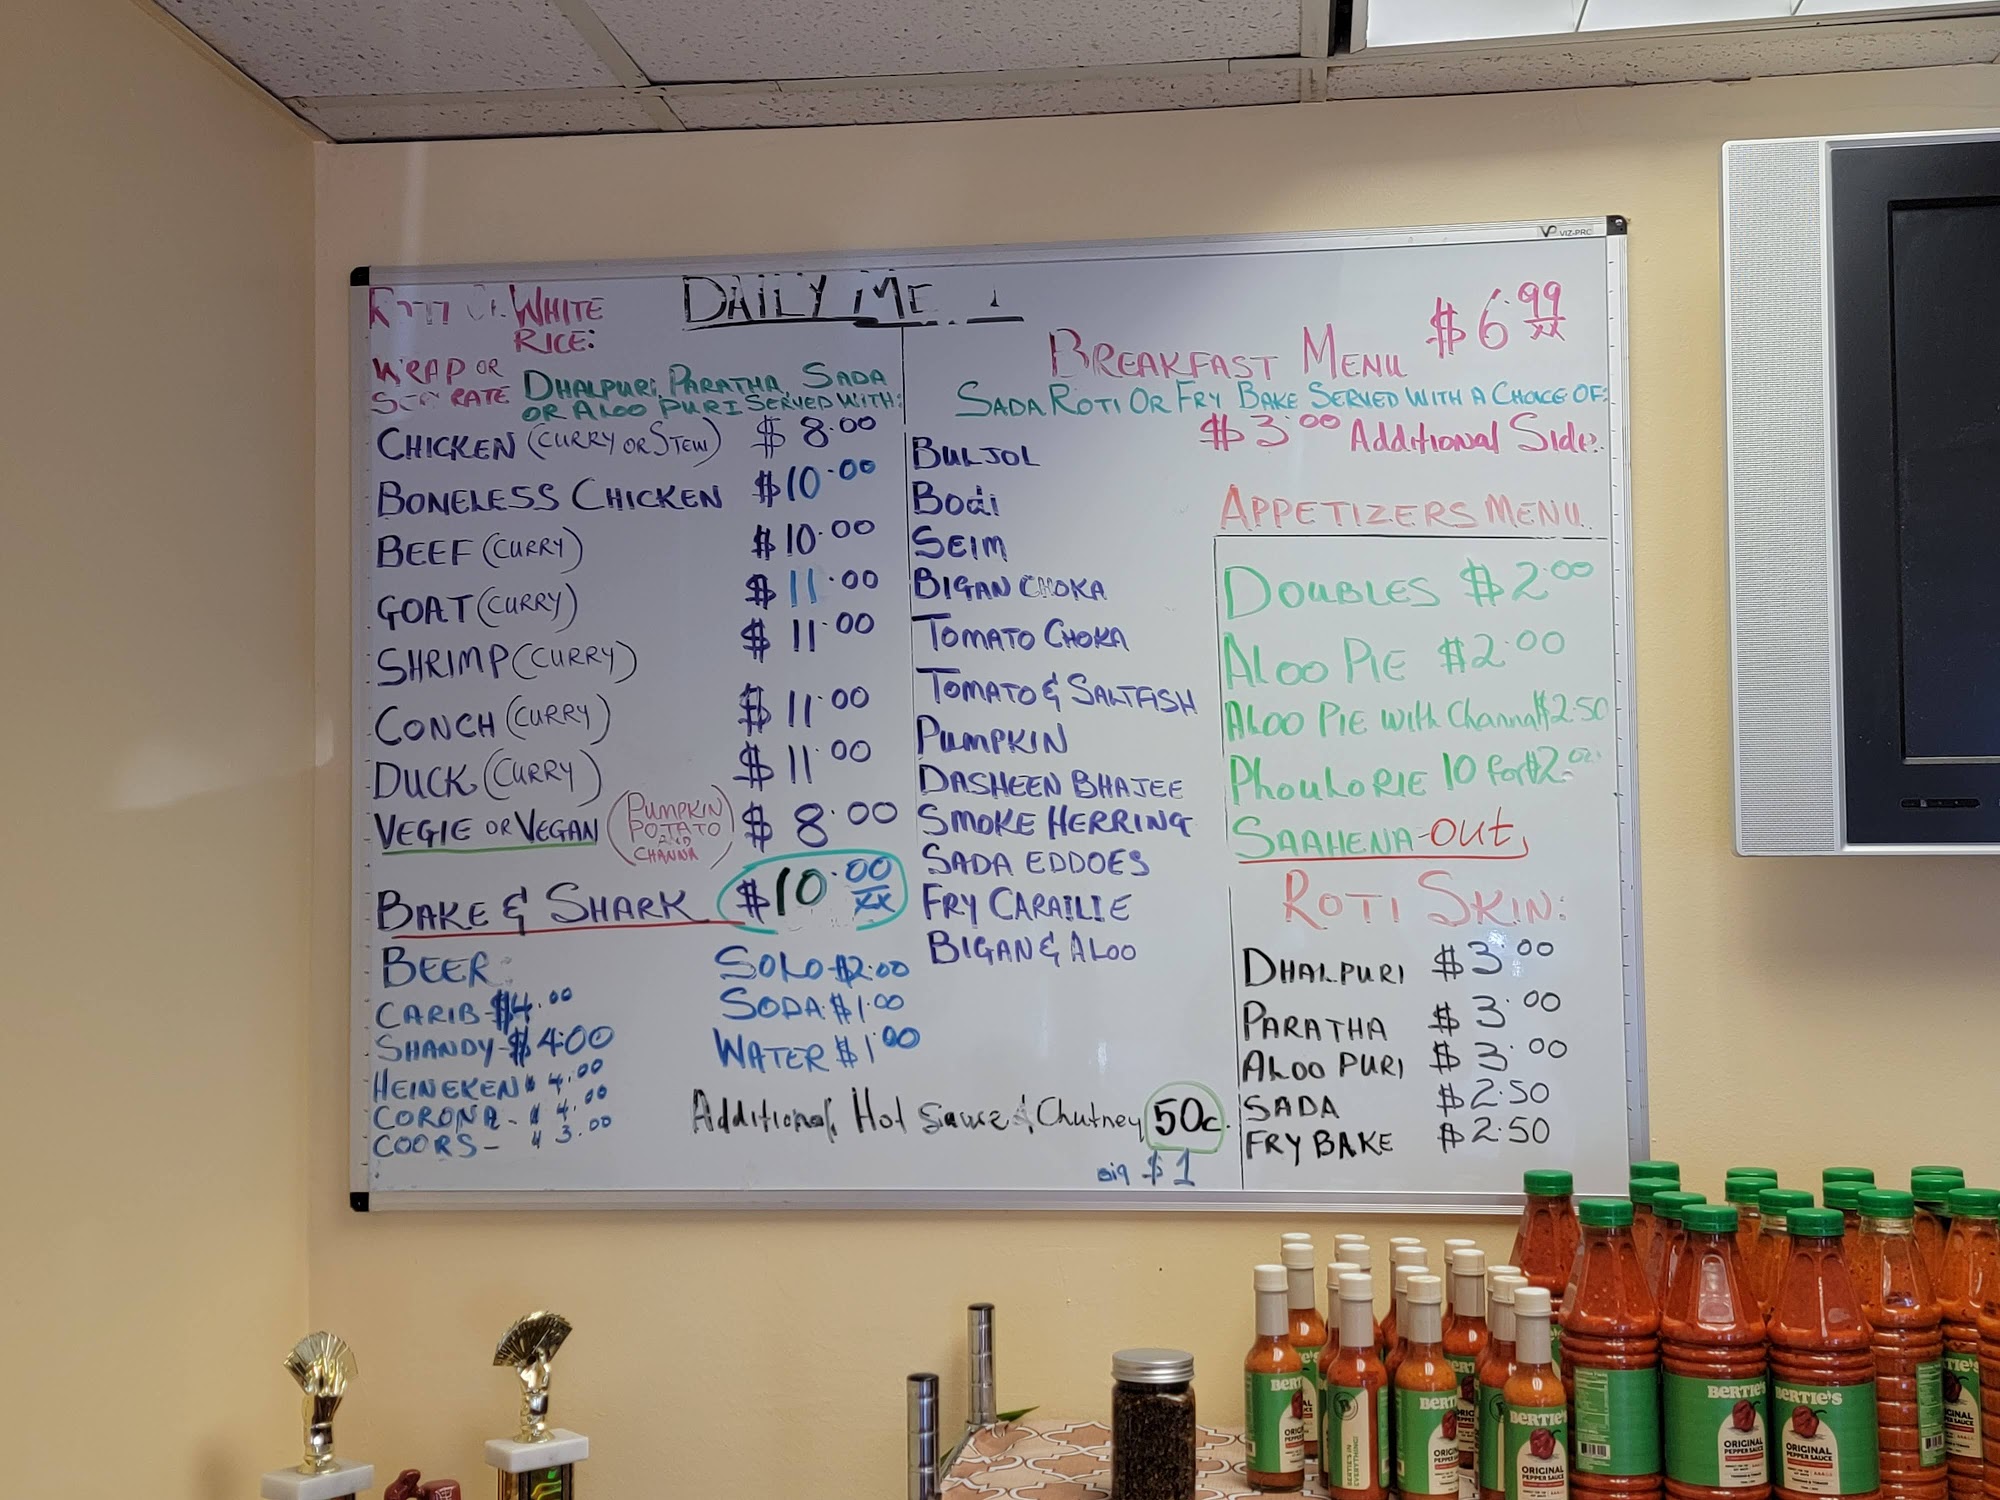 WHITE
RICE:
DAILY
WRAP OR
DHALPURI, PARATHA, SADA
OR ALOO PURI SERVED WITH:
CHICKEN (CURRY OR STEW) $8.00
BONELESS CHICKEN $10.00
BEEF (CURRY) $10.00
GOAT (CURRY) $11.00
SHRIMP (CURRY) $11.00
CONCH (CURRY) $11.00
DUCK (CURRY) $11.00
VEGIE OR VEGAN (PUMPKIN POTATO AND CHANNA) $8.00
BAKE & SHARK $10.00
BEER:
CARIB-$4.00
SHANDY-$4.00
HEINEKEN $4.00
CORONA-$4.00
COORS-$3.00
SOLO-$2.00
SODA:$1.00
WATER $1.00
Additional Hot Sauce & Chutney 50c
Big $1
BREAKFAST MENU $6.99
SADA ROTI OR FRY BAKE SERVED WITH A CHOICE OF:
$3.00 Additional Side.
BULJOL
Bodi
SEIM
BIGAN CHOKA
TOMATO CHOKA
TOMATO & SALTFISH
PUMPKIN
DASHEEN BHAJEE
SMOKE HERRING
SADA EDDOES
FRY CARAILIE
BIGAN & ALOO
APPETIZERS MENU
DOUBLES $2.00
ALOO PIE $2.00
ALOO PIE with Channa $2.50
PhouloRIE 10 for $2.00
SAAHENA-OUT
ROTI SKIN:
DHALPURI $3.00
PARATHA $3.00
ALOO PURI $3.00
SADA $2.50
FRY BAKE $2.50
VIZ-PRO
BERTIE'S
ORIGINAL
PEPPER SAUCE
BERTIE'S
ORIGINAL
PEPPER SAUCE
BERTIE'S
ORIGINAL
PEPPER SAUCE
BERTIE'S
BERTIE'S IN
EVERYTHING!